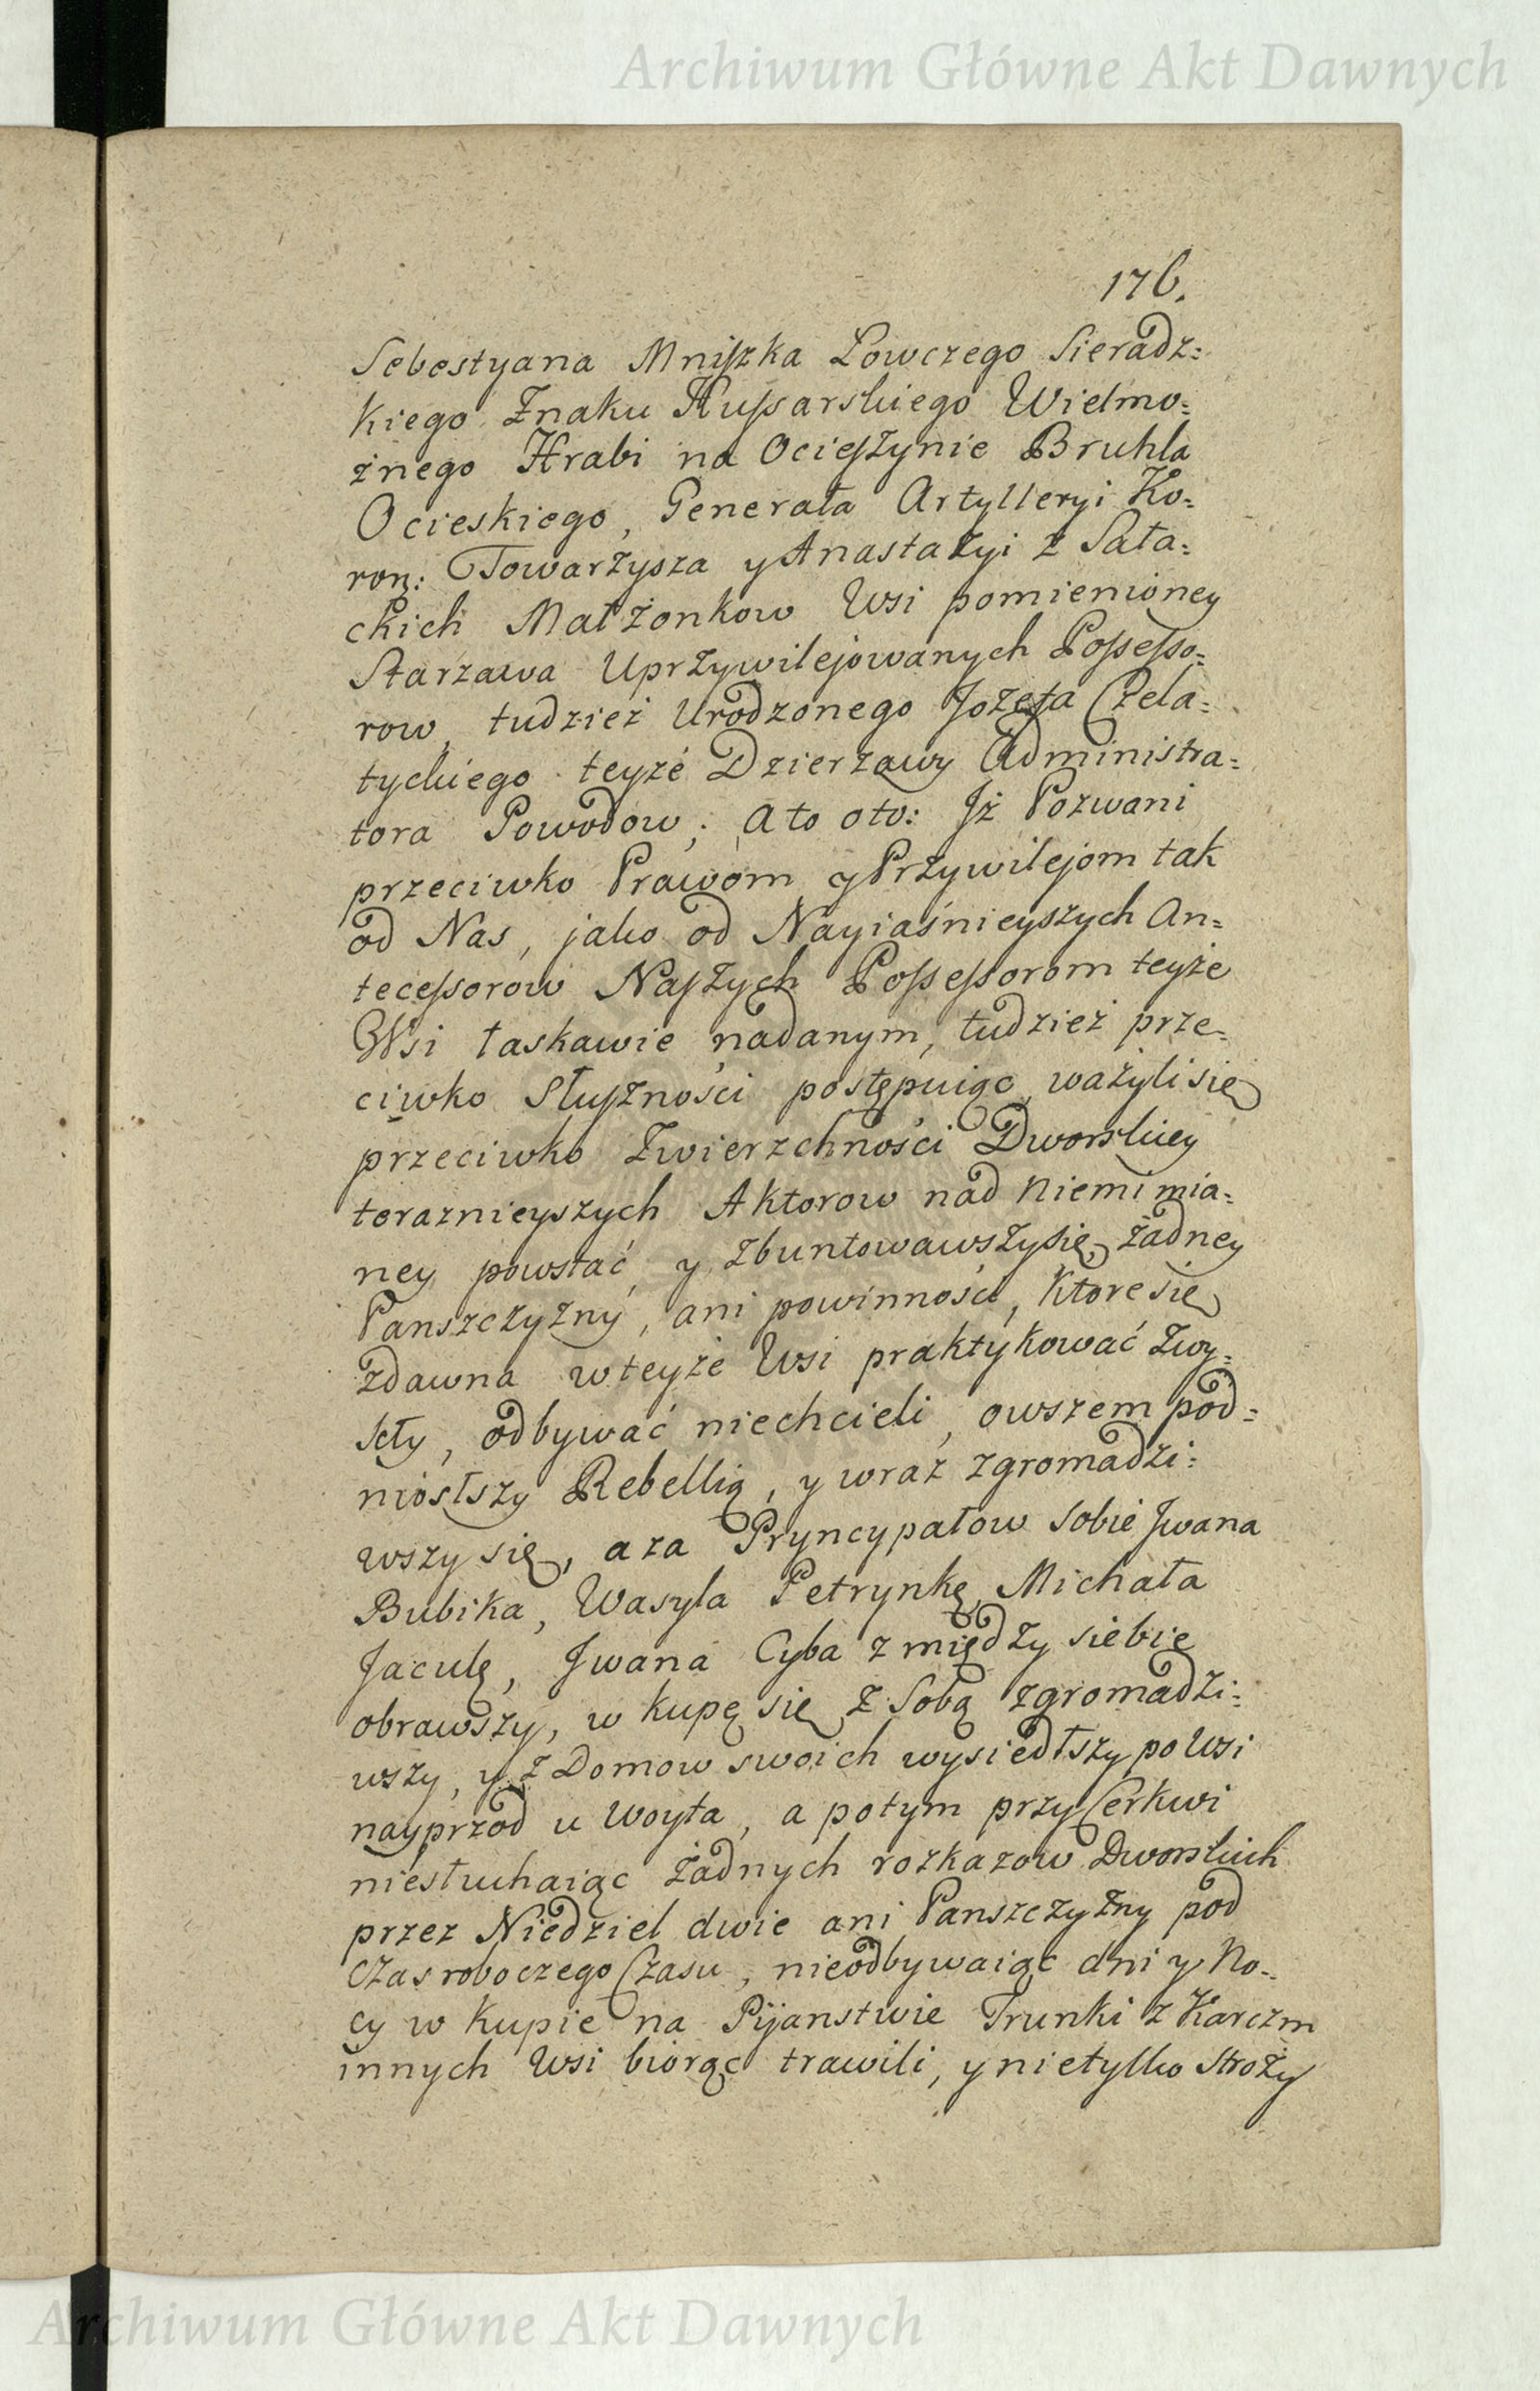 Archiwum Główne Akt Dawnych
176.
Sebestyana Mniszka Łowczego Sieradz=
kiego Znaku Hussarskiego Wielmo=
żnego Hrabi na Ocieszynie Bruhla
Ocieskiego, Generała Artylleryi Ko=
ron: Towarzysza y Anastazyi z Sała=
ckich Małżonkow Wsi pomienioney
Starzawa Uprzywilejowanych Possesso=
row, tudzież Urodzonego Jozefa Czela=
tyckiego teyże Dzierzawy Administra=
tora Powodow; A to oto: Jż Pozwani
przeciwko Prawom y Przywilejom tak
od Nas, jako od Nayiaśnieyszych An=
tecessorow Naszych Possessorom teyże
Wsi łaskawie nadanym, tudzież prze=
ciwko Słuszności postępuiąc, ważyli się
przeciwko Zwierzchności Dworskiey
teraznieyszych Aktorow nad niemi mia=
ney powstać, y zbuntowawszy się żadney
Panszczyzny, ani powinności, ktore się
zdawna w teyże Wsi praktykować zwy=
kły, odbywać niechcieli, owszem pod=
niosłszy Rebellią, y wraz zgromadzi=
wszy się, a za Pryncypałow sobie Jwana
Bubika, Wasyla Petrynkę, Michała
Jaculę, Jwana Cyba z między siebie
obrawszy, w kupę się z sobą zgromadzi=
wszy, y z Domow swoich wysiedłszy po Wsi
nayprzod u Woyta, a potym przy Cerkwi
niesłuchaiąc żadnych rozkazow Dworskich
przez Niedziel dwie ani Panszczyzny pod
czas roboczego Czasu, nieodbywaiąc dni y No=
cy w Kupie na Pijanstwie Trunki z Karczm
innych Wsi biorąc trawili, y nietylko Stroży
Archiwum Główne Akt Dawnych